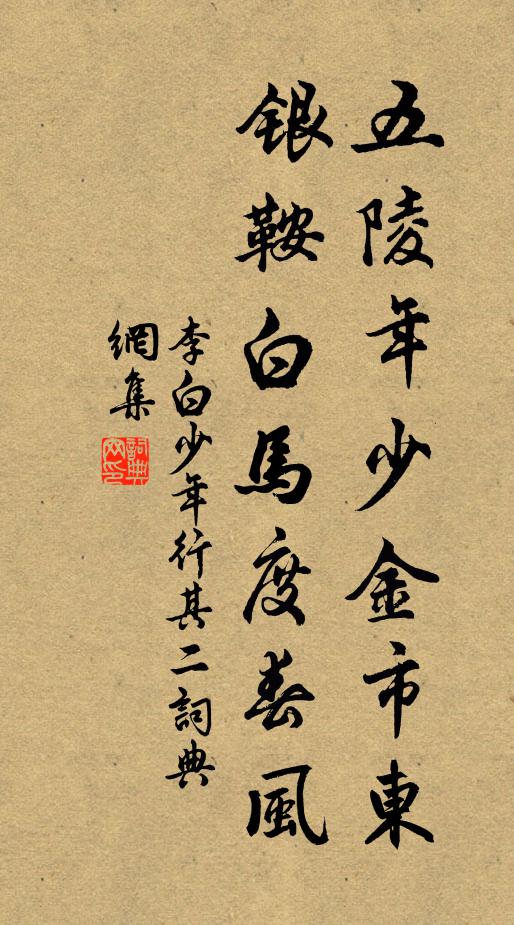 五陵年少金市東
銀鞍白馬度春風
李白少年行其二詞典
網集
詞典
网印